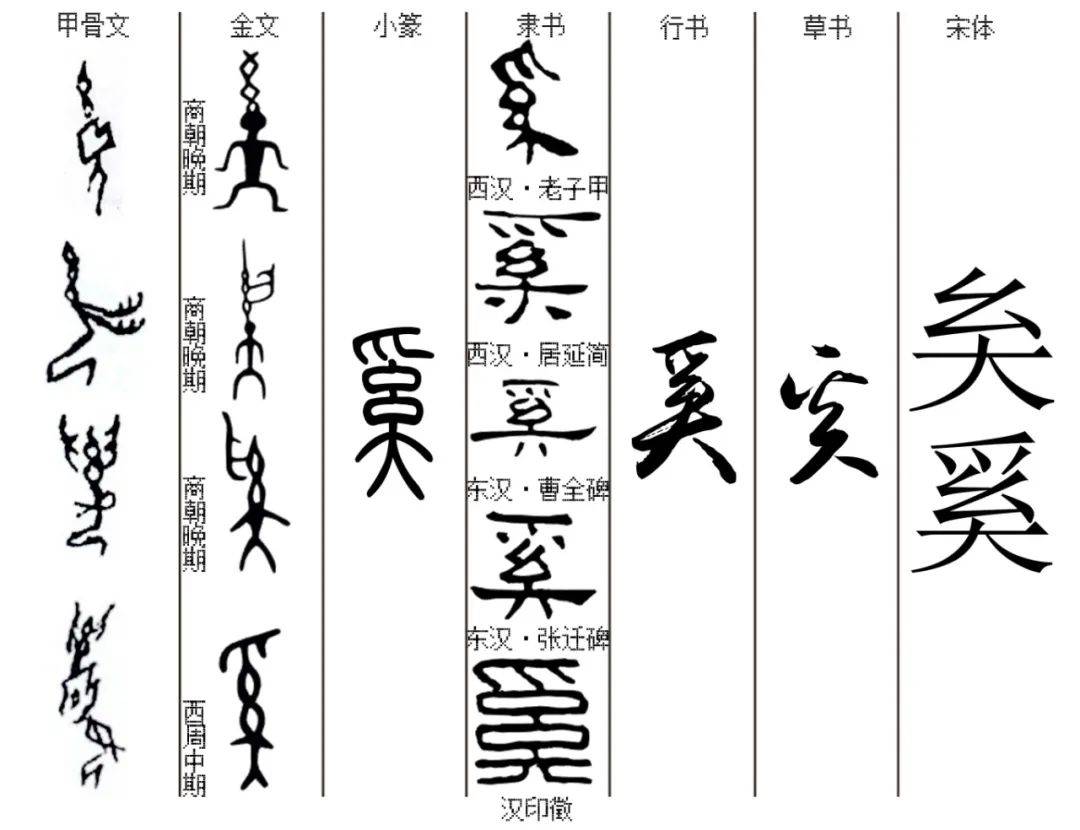 甲骨文 金文 小篆 隶书 行书 草书 宋体
商朝晚期
商朝晚期
商朝晚期
西周中期
奚
奚
西汉·老子甲
奚
西汉·居延简
奚
东汉·曹全碑
奚
东汉·张迁碑
奚
汉印徵
奚
奚
奚